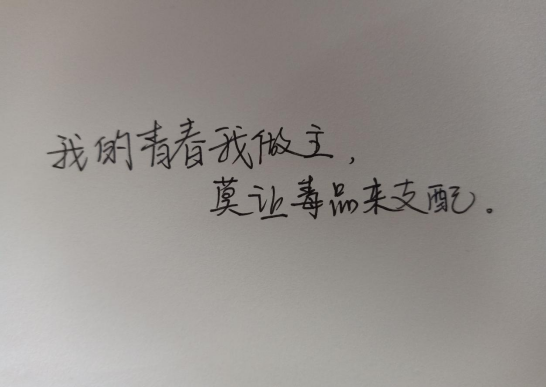 我的青春我做主，
莫让毒品来支配。